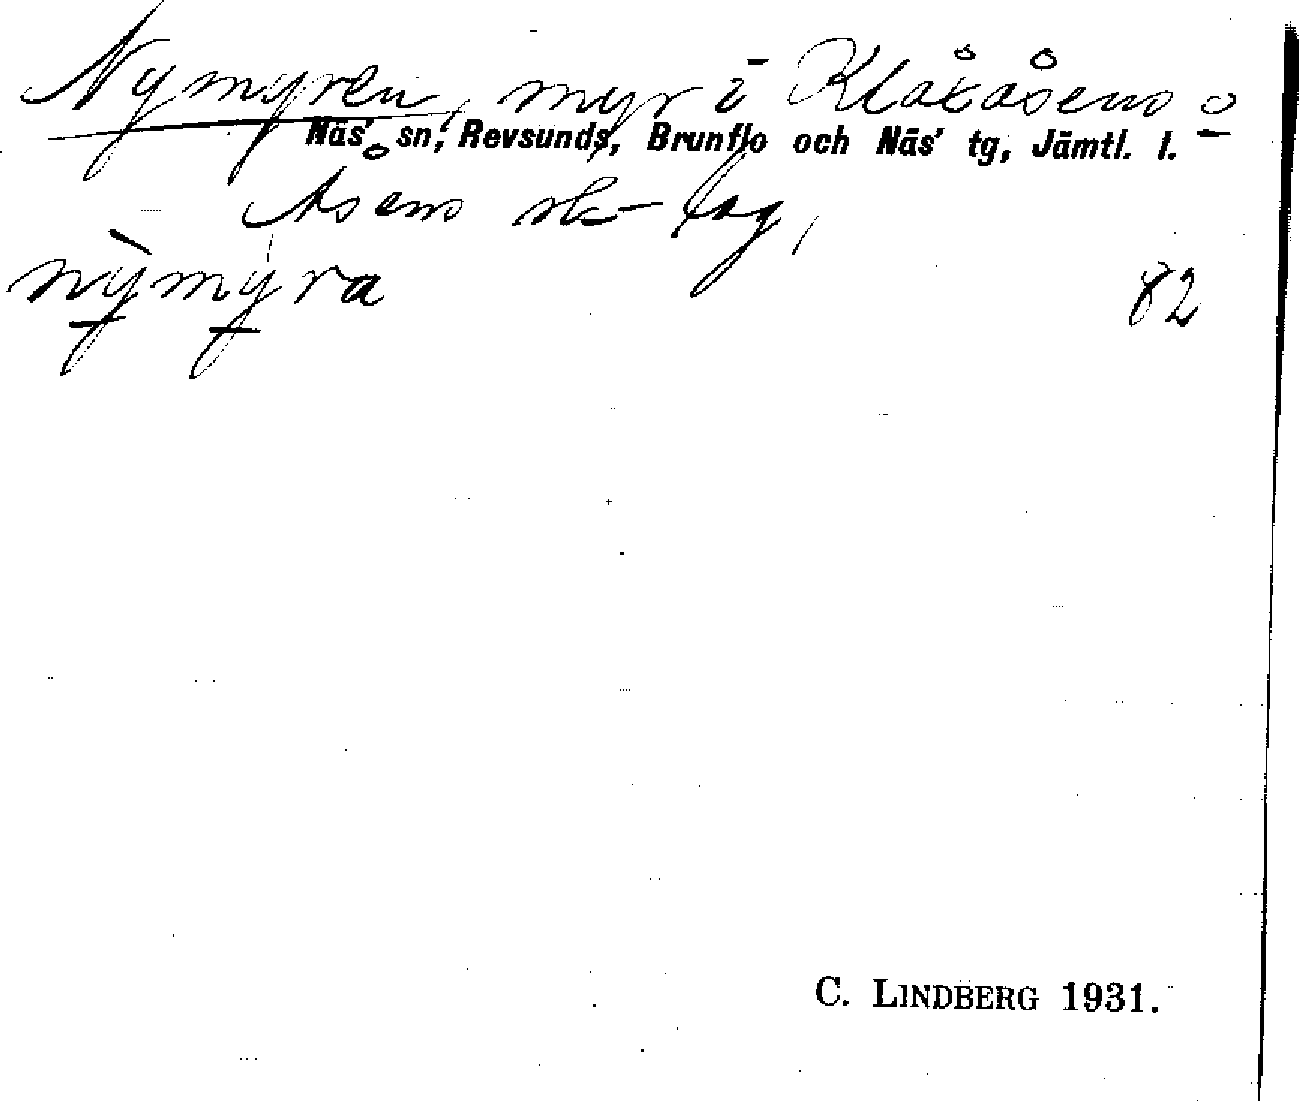 Nymyren, myr i Klåxåsens o
Näs' sn, Revsunds, Brunflo och Näs' tg, Jämtl. l.
Åsens sk-lag,
nỳmýra
82
C. LINDBERG 1931.